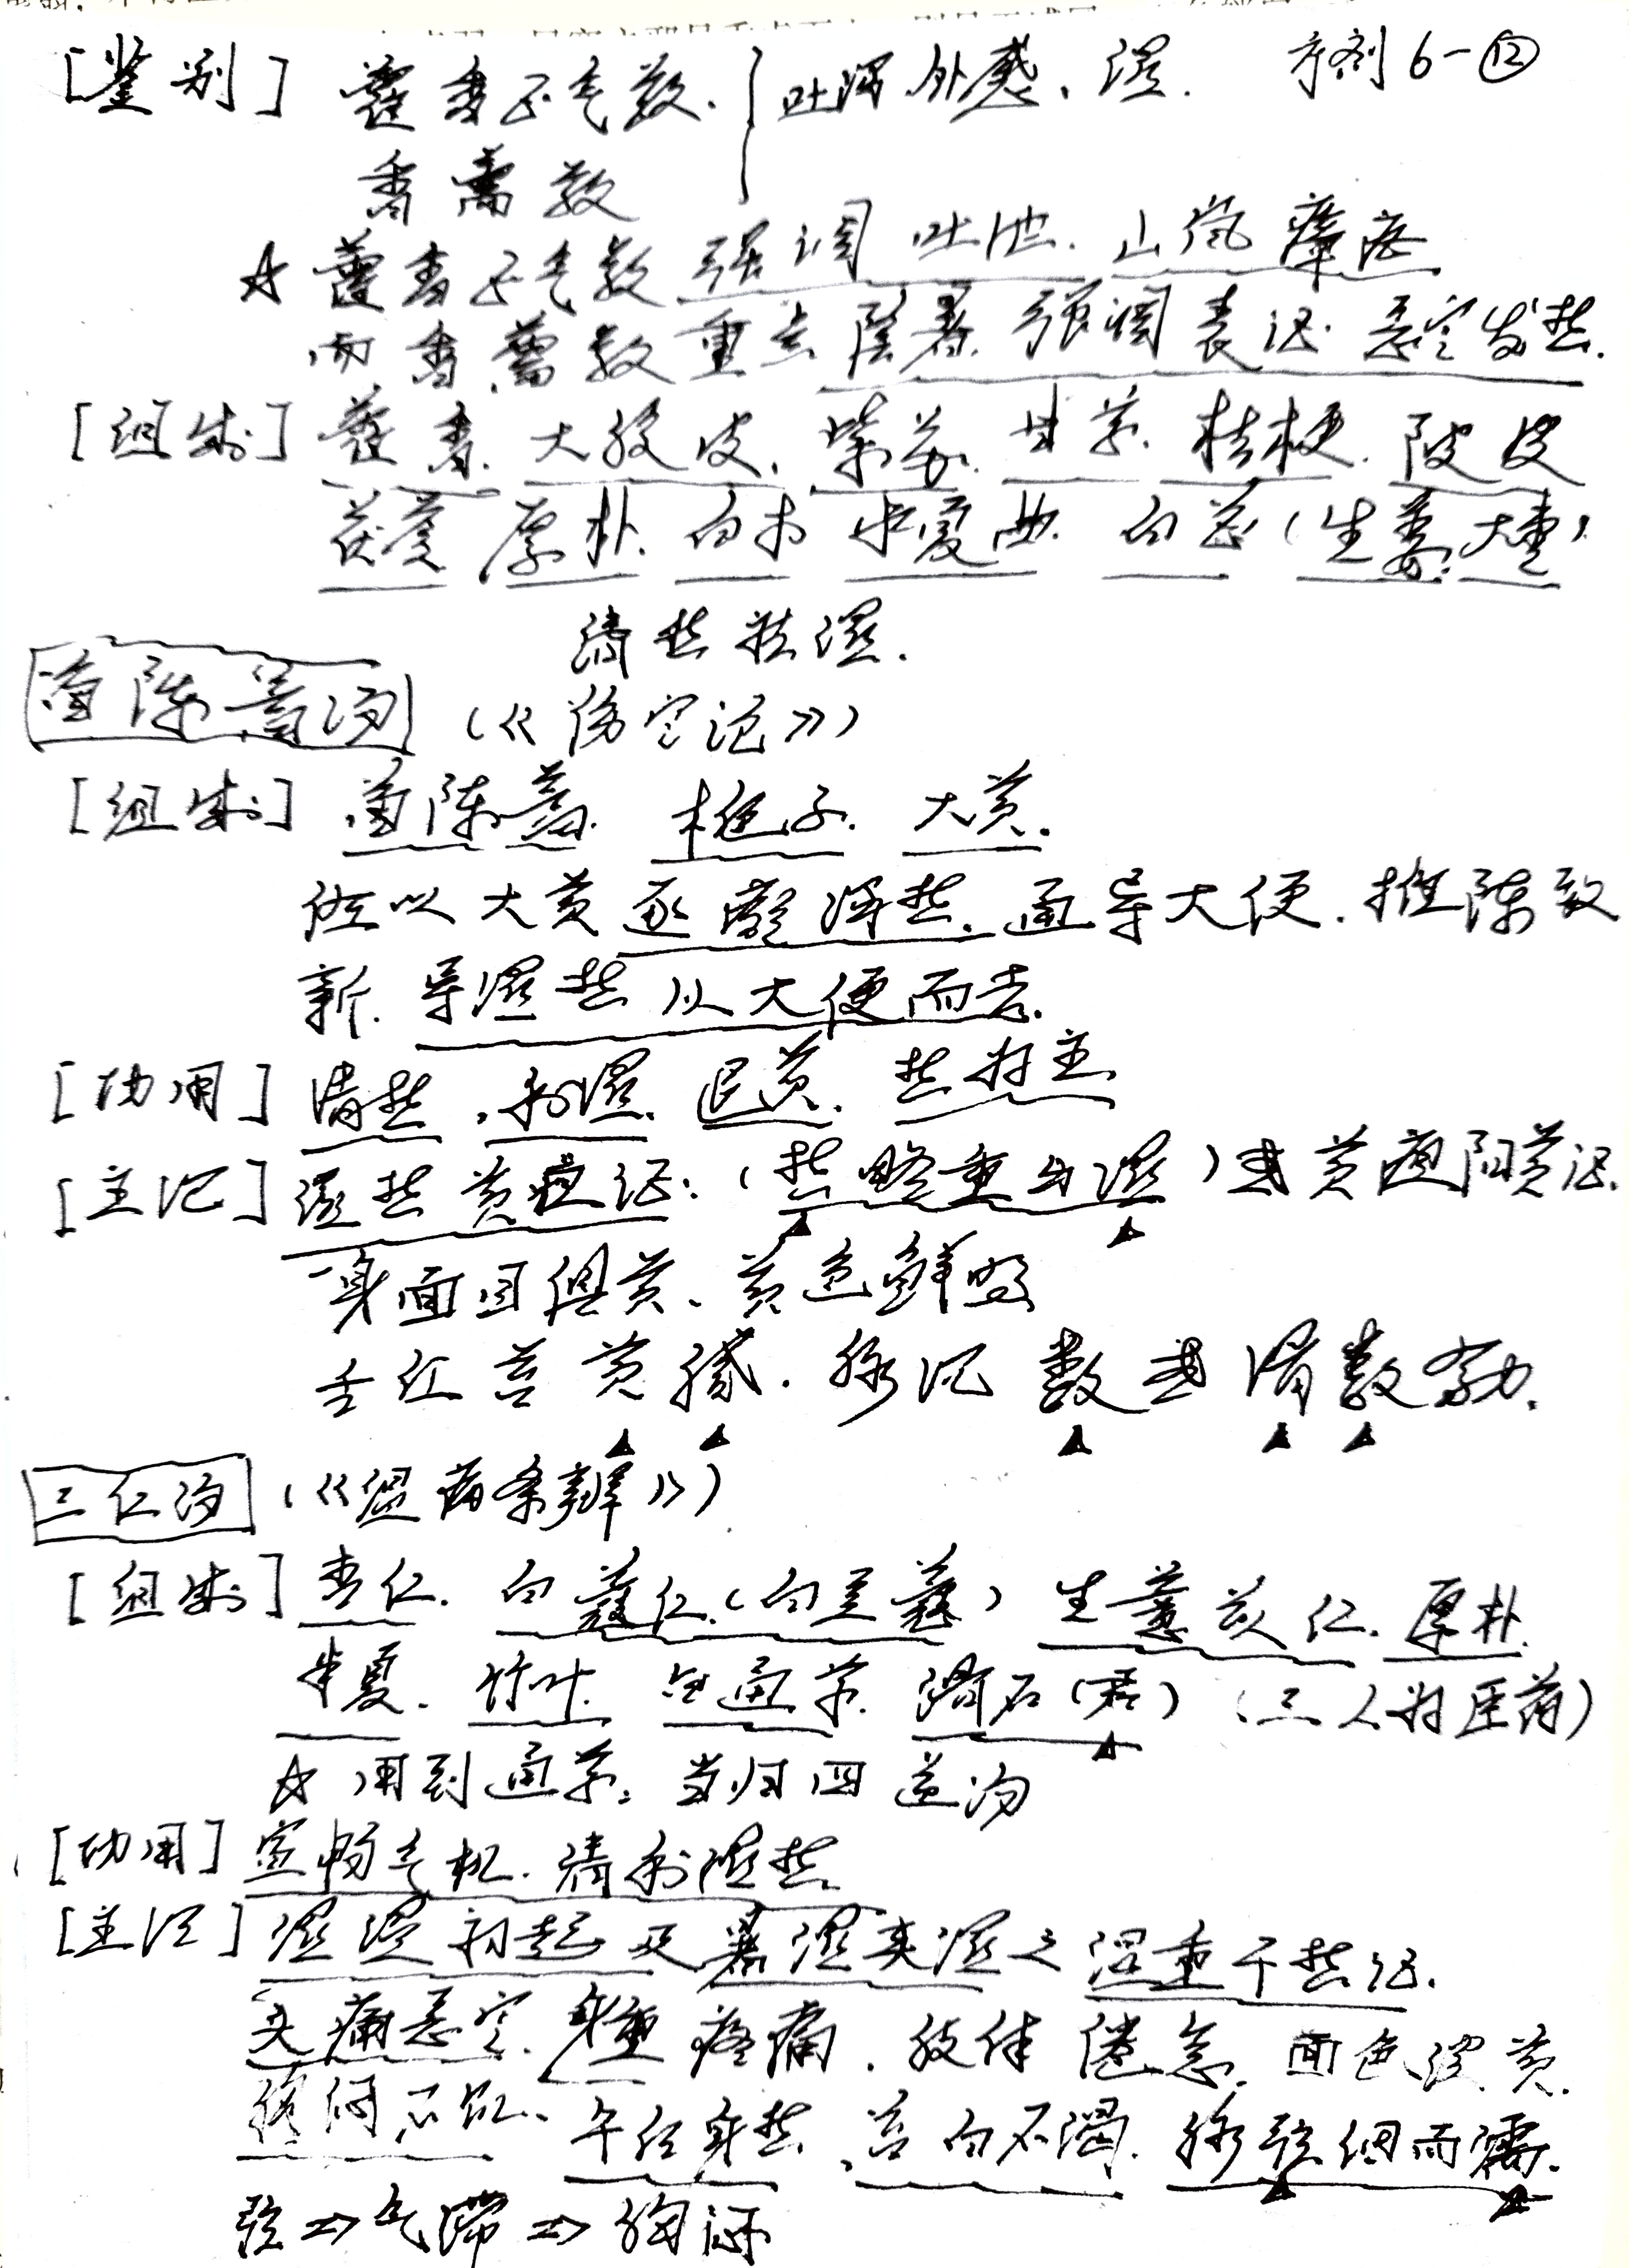 [鉴别] 藿香正气散、}吐泻外感、湿. 方剂6-⑫
香薷散
☆ 藿香正气散强调吐泄. 山岚瘴疟
而香薷散重点阴暑. 强调表证. 恶寒发热.
[组成] 藿香. 大腹皮、紫苏. 甘草. 桔梗. 陈皮
茯苓 厚朴. 白术 半夏曲. 白芷 (生姜. 大枣)
清热祛湿.
茵陈蒿汤 (《伤寒论》)
[组成] 茵陈蒿. 栀子. 大黄.
佐以大黄逐瘀泻热. 通导大便. 推陈致
新. 导湿热从大便而去.
[功用] 清热、利湿. 退黄. 热为主
[主证] 湿热黄疸证. (热略重于湿) 或黄疸阳黄证.
一身面目俱黄、黄色鲜明
舌红苔黄腻. 脉沉数或滑数有力.
三仁汤 (《温病条辨》)
[组成] 杏仁. 白蔻仁.(白豆蔻) 生薏苡仁. 厚朴.
半夏. 竹叶. 白通草. 滑石(君) (三仁为臣药)
☆ 用到通草: 当归四逆汤
[功用] 宣畅气机. 清利湿热
[主证] 湿温初起及暑温夹湿之湿重于热证.
头痛恶寒. 身重疼痛. 肢体倦怠. 面色淡黄.
胸闷不饥、午后身热、苔白不渴. 脉弦细而濡.
弦⇒气滞⇒胸闷